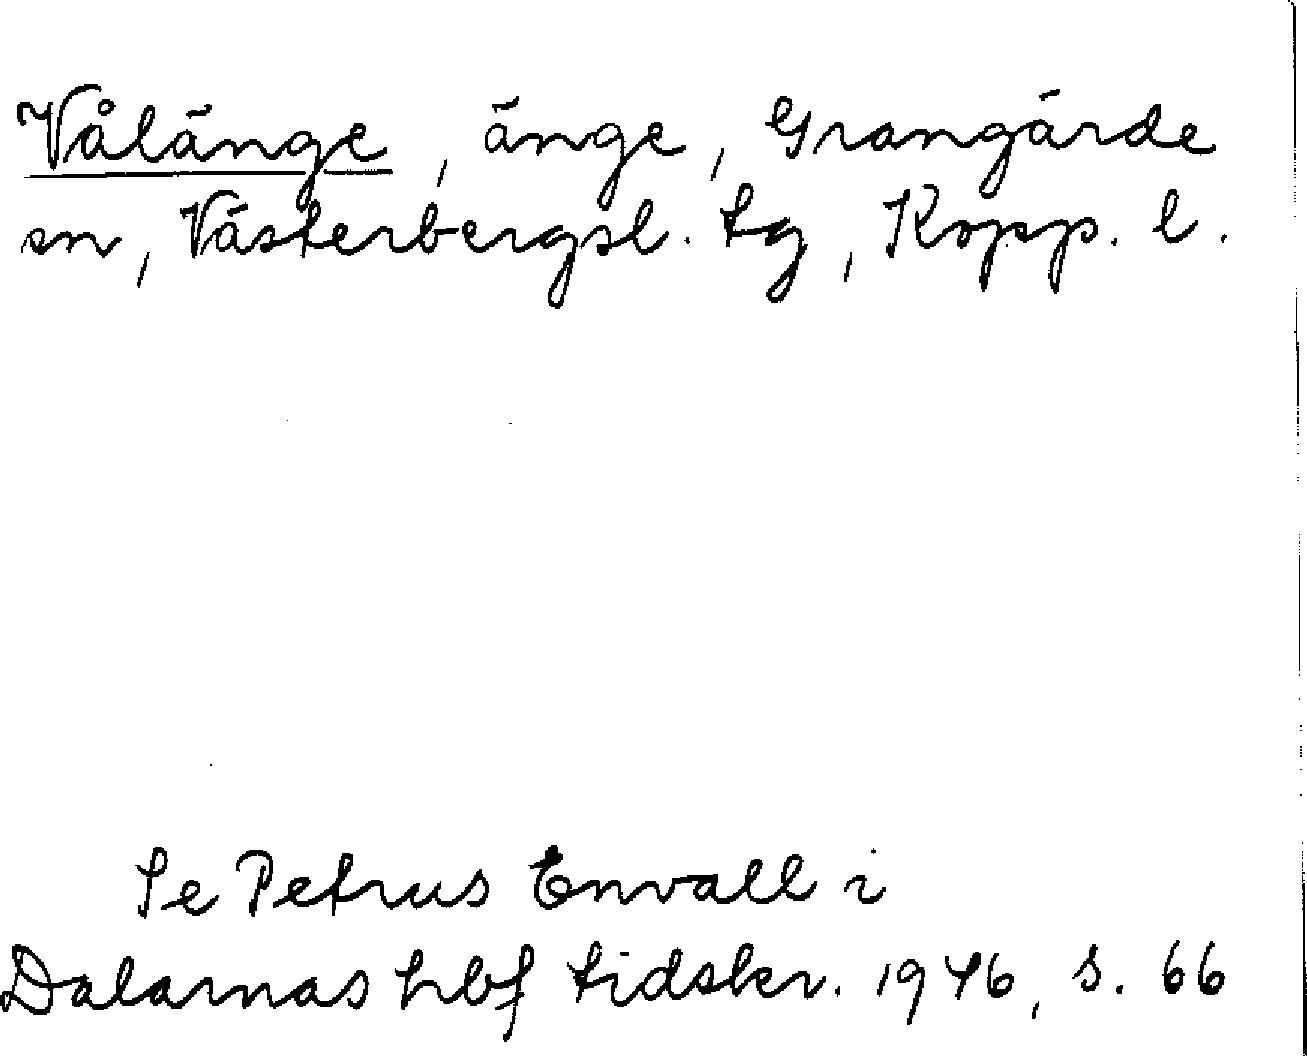 Vålänge, änge, Grangärde
sn, Västerbergsl. tg, Kopp. l.
Se Petrus Envall i
Dalarnas hbf tidskr. 1946, s. 66